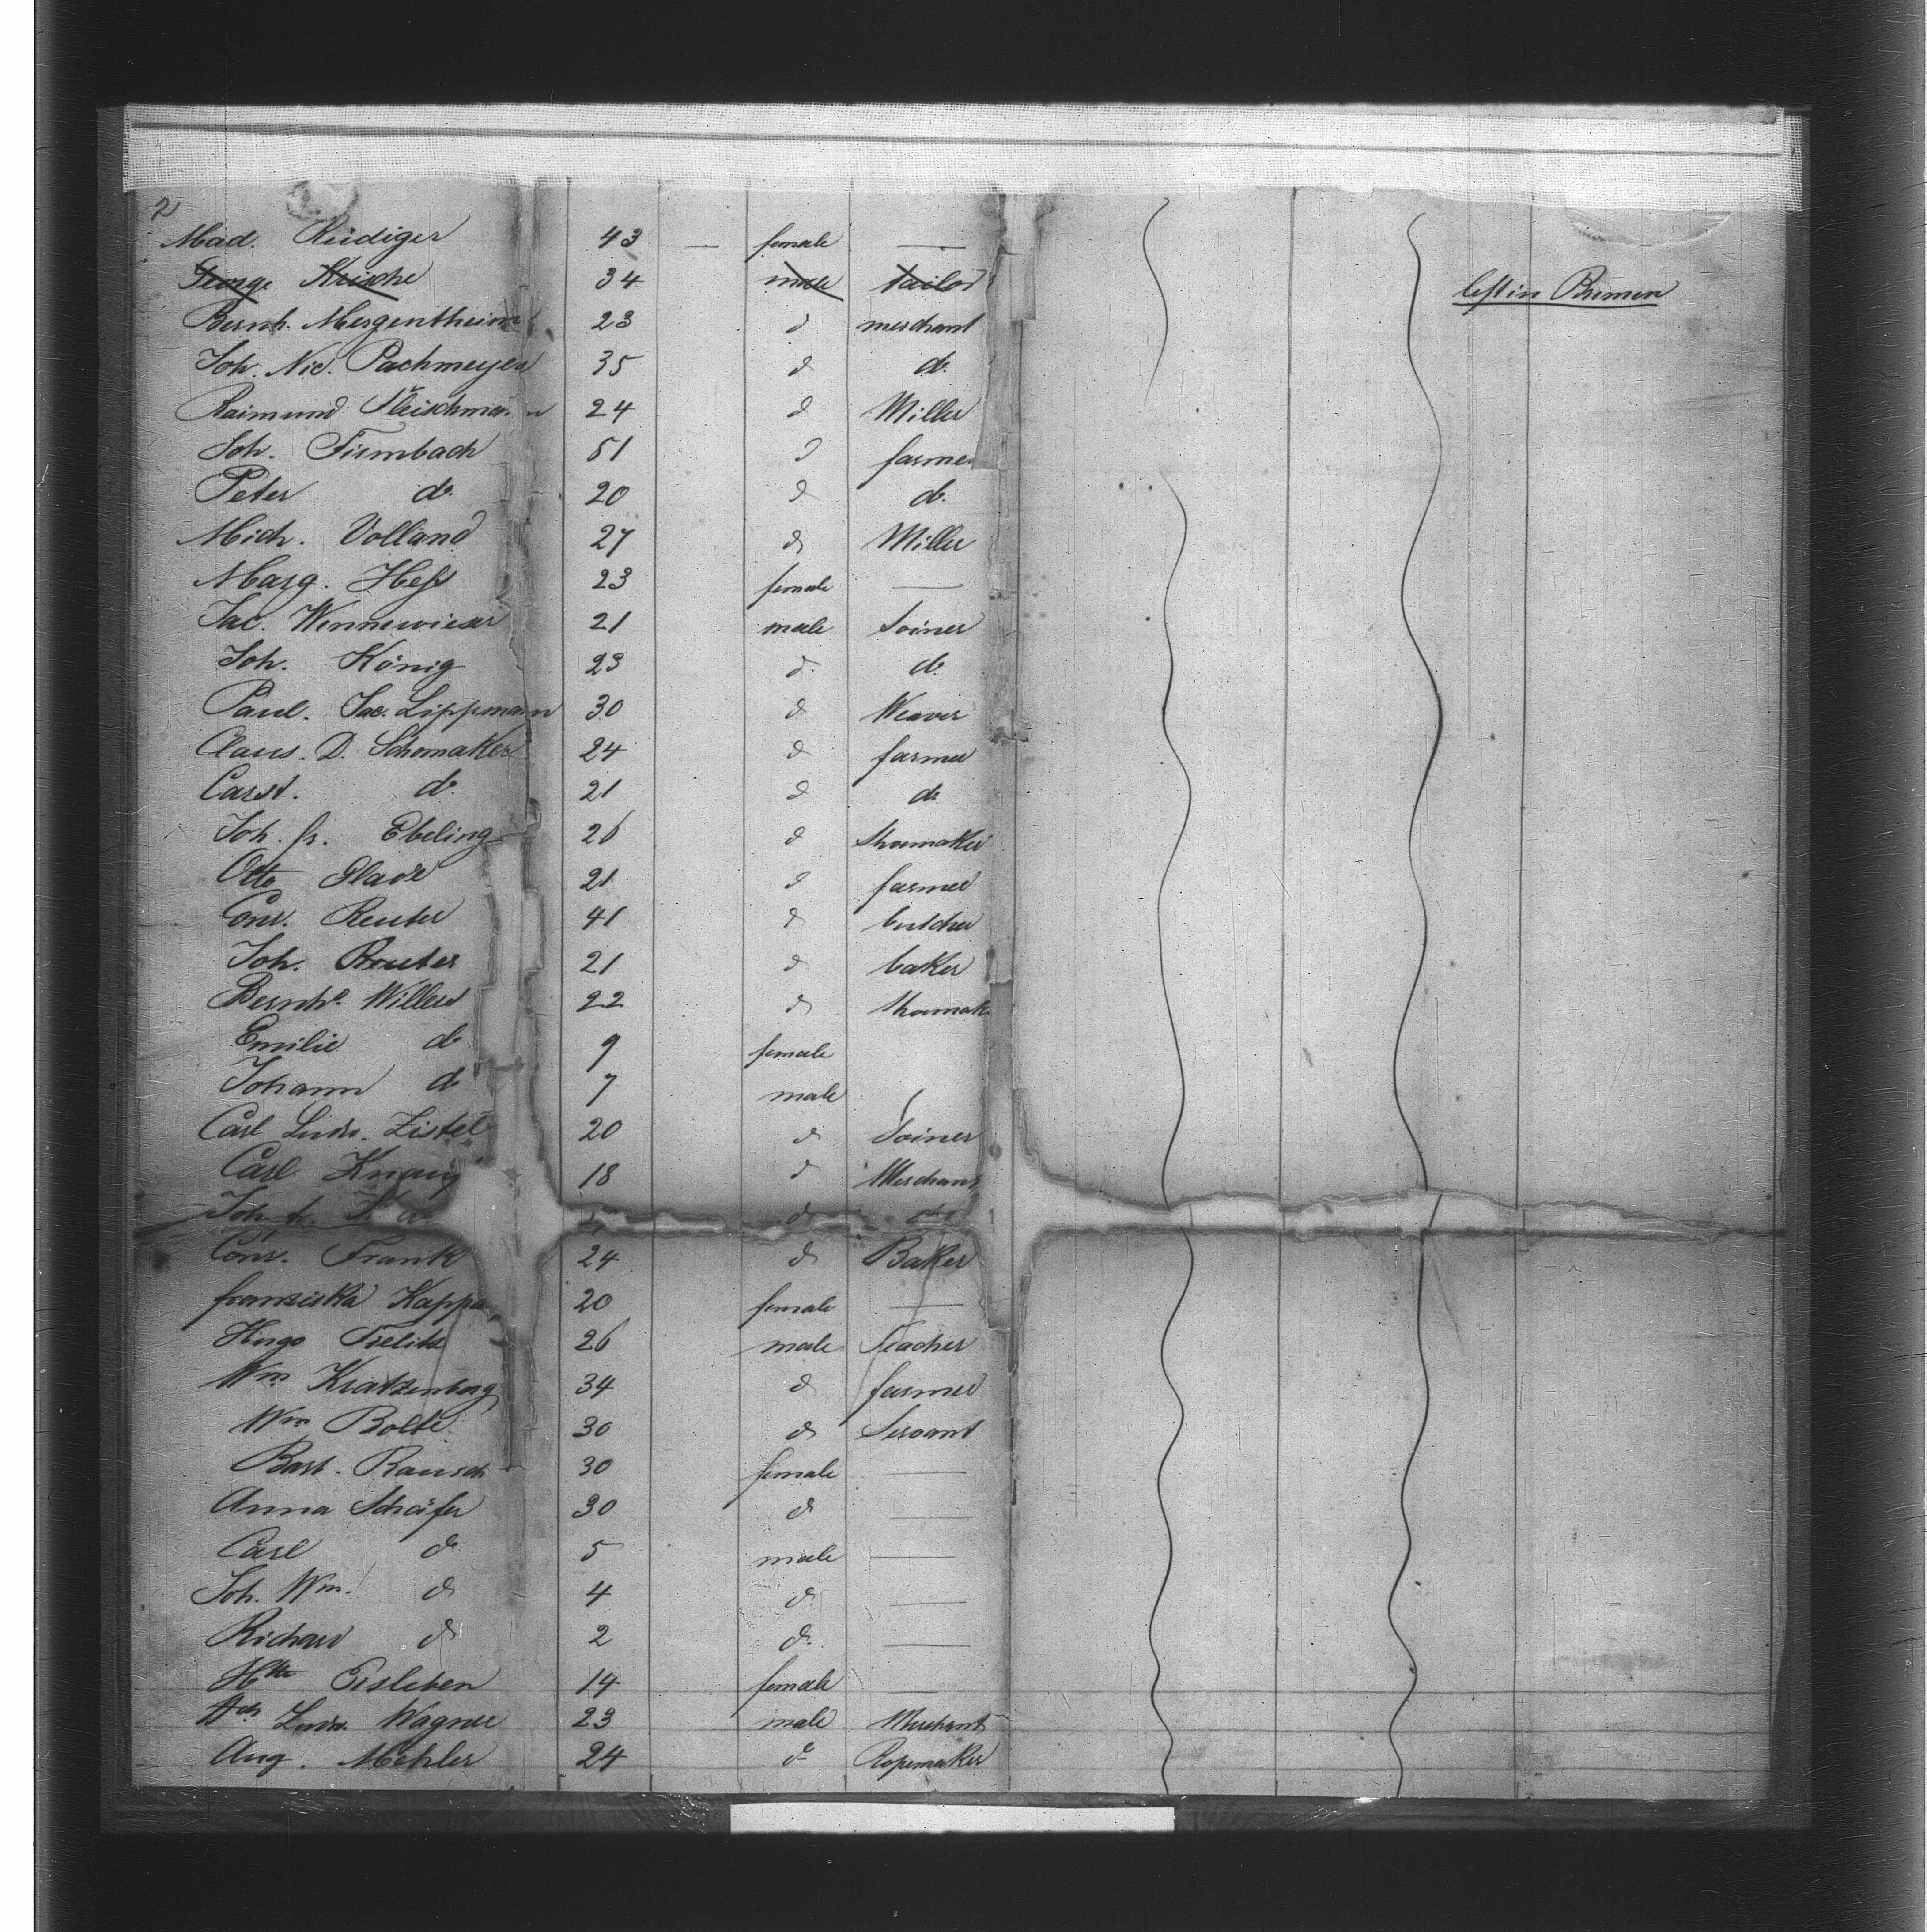 2
Mad. Rüdiger 43 — female —
George Krische 34 male tailor left in Bremen
Bernh. Mergentheim 23 d merchant
Joh. Nic. Pachmeyer 35 d do.
Raimund Fleischmann 24 d Miller
Joh. Firmbach 51 d farmer
Peter do. 20 d do.
Mich. Volland 27 d Miller
Marg. Heß 23 female —
Jac. Wennewieser 21 male Joiner
Joh. König 23 d. do.
Paul. Jac. Lippmann 30 d Weaver
Claus. D. Schomaker 24 d farmer
Carst. do. 21 d do
Joh. fr. Ebeling 26 d Shoemaker
Otto Glade 21 d farmer
Conr. Reuter 41 d butcher
Joh. Reuter 21 d baker
Bernhd. Willers 22 d Shoemak
Emilie do 9 female
Johann do 7 male
Carl Ludw. Zistel 20 d Joiner
Carl Knauf 18 d Merchant
Joh. fr. d
Conr. Frank 24 d Baker
franziska Kappa 20 female —
Hugo Trelitz 26 male Teacher
Wm Kratzenberg 34 d farmer
Wm Bolte 30 d Servant
Barb. Rausch 30 female —
Anna Schäfer 30 d —
Carl do 5 male —
Joh. Wm. d 4 d —
Richard d 2 d. —
Htte Eisleben 14 female —
Ludw. Wagner 23 male Merchant
Aug. Mehler 24 do Ropemaker